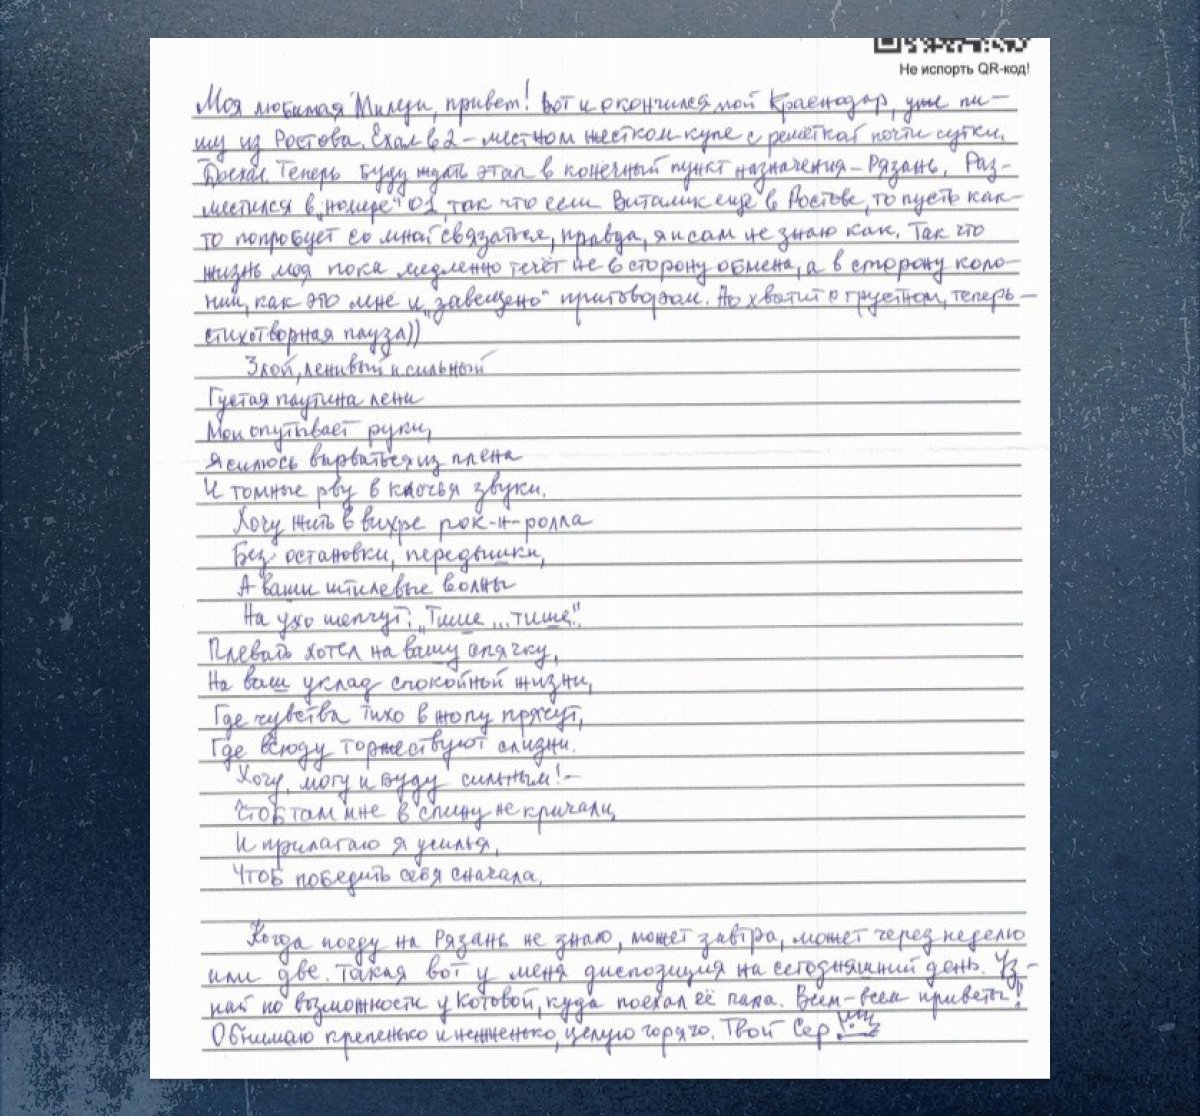 Не испорть QR-код!
Моя любимая Милуи, привет! Вот и окончился мой Краснодар, уже пи-
шу из Ростова. Ехал в 2-местном жестком купе с решёткой почти сутки.
Доехал. Теперь буду ждать этап в конечный пункт назначения – Рязань. Раз-
местился в „номере" 01, так что если Виталик ещё в Ростове, то пусть как-
то попробует со мной связаться, правда, я и сам не знаю как. Так что
жизнь моя пока медленно течёт не в сторону обмена, а в сторону коло-
нии, как это мне и „завещено" приговором. Но хватит о грустном, теперь –
стихотворная пауза))
Злой, ленивый и сильный
Густая паутина лени
Мои опутывает руки,
Я силюсь вырваться из плена
И томные рву в клочья звуки.
Хочу жить в вихре рок-н-ролла
Без остановки, передышки,
А ваши штилевые волны
На ухо шепчут: „Тише ... тише".
Плевать хотел на вашу спячку,
На ваш уклад спокойной жизни,
Где чувства тихо в жопу прячут,
Где всюду торжествуют слизни.
Хочу, могу и буду сильным! –
Чтоб там мне в спину не кричали,
И прилагаю я усилья,
Чтоб победить себя сначала.
Когда поеду на Рязань не знаю, может завтра, может через неделю
или две. Такая вот у меня диспозиция на сегодняшний день. Уз-
най по возможности у Котовой, куда поехал её папа. Всем-всем приветы!
Обнимаю крепенько и неженько, целую горячо. Твой Сер